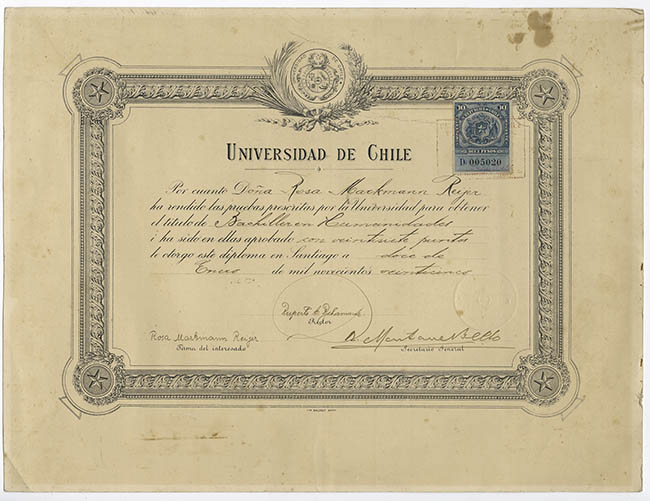 10 10
DIEZ PESOS
D 005020
UNIVERSIDAD DE CHILE
Por cuanto Doña Rosa Markmann Reijer
ha rendido las pruebas prescritas por la Universidad para obtener
el título de Bachiller en Humanidades
i ha sido en ellas aprobado con veintisiete puntos
le otorgo este diploma en Santiago a doce de
Enero de mil novecientos veinticinco
Ruperto A Bahamonde
Rector
Rosa Markmann Reijer
Firma del interesado
Secretario Jeneral